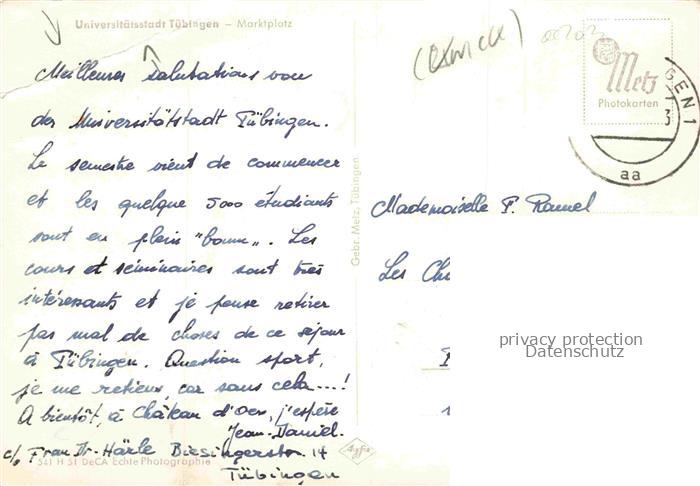 Universitätsstadt Tübingen – Marktplatz
Meilleures salutations von
der Universitätstadt Tübingen.
Le semestre vient de commencer
et les quelque 5000 étudiants
sont en plein "boum". Les
cours et séminaires sont très
intéressants et je pense retirer
pas mal de choses de ce séjour
à Tübingen. Question sport,
je me retiens, car sans cela....!
A bientôt, à Château d'Oex, j'espère
Jean-Daniel.
c/o Frau Dr. Härle Biesingerstr. 14
541 H 51 DeCA Echte Photographie
Tübingen
Gebr. Metz, Tübingen
Agfa
Metz
Photokarten
GEN 1
3
aa
Mademoiselle F. Ramel
Les
privacy protection
Datenschutz